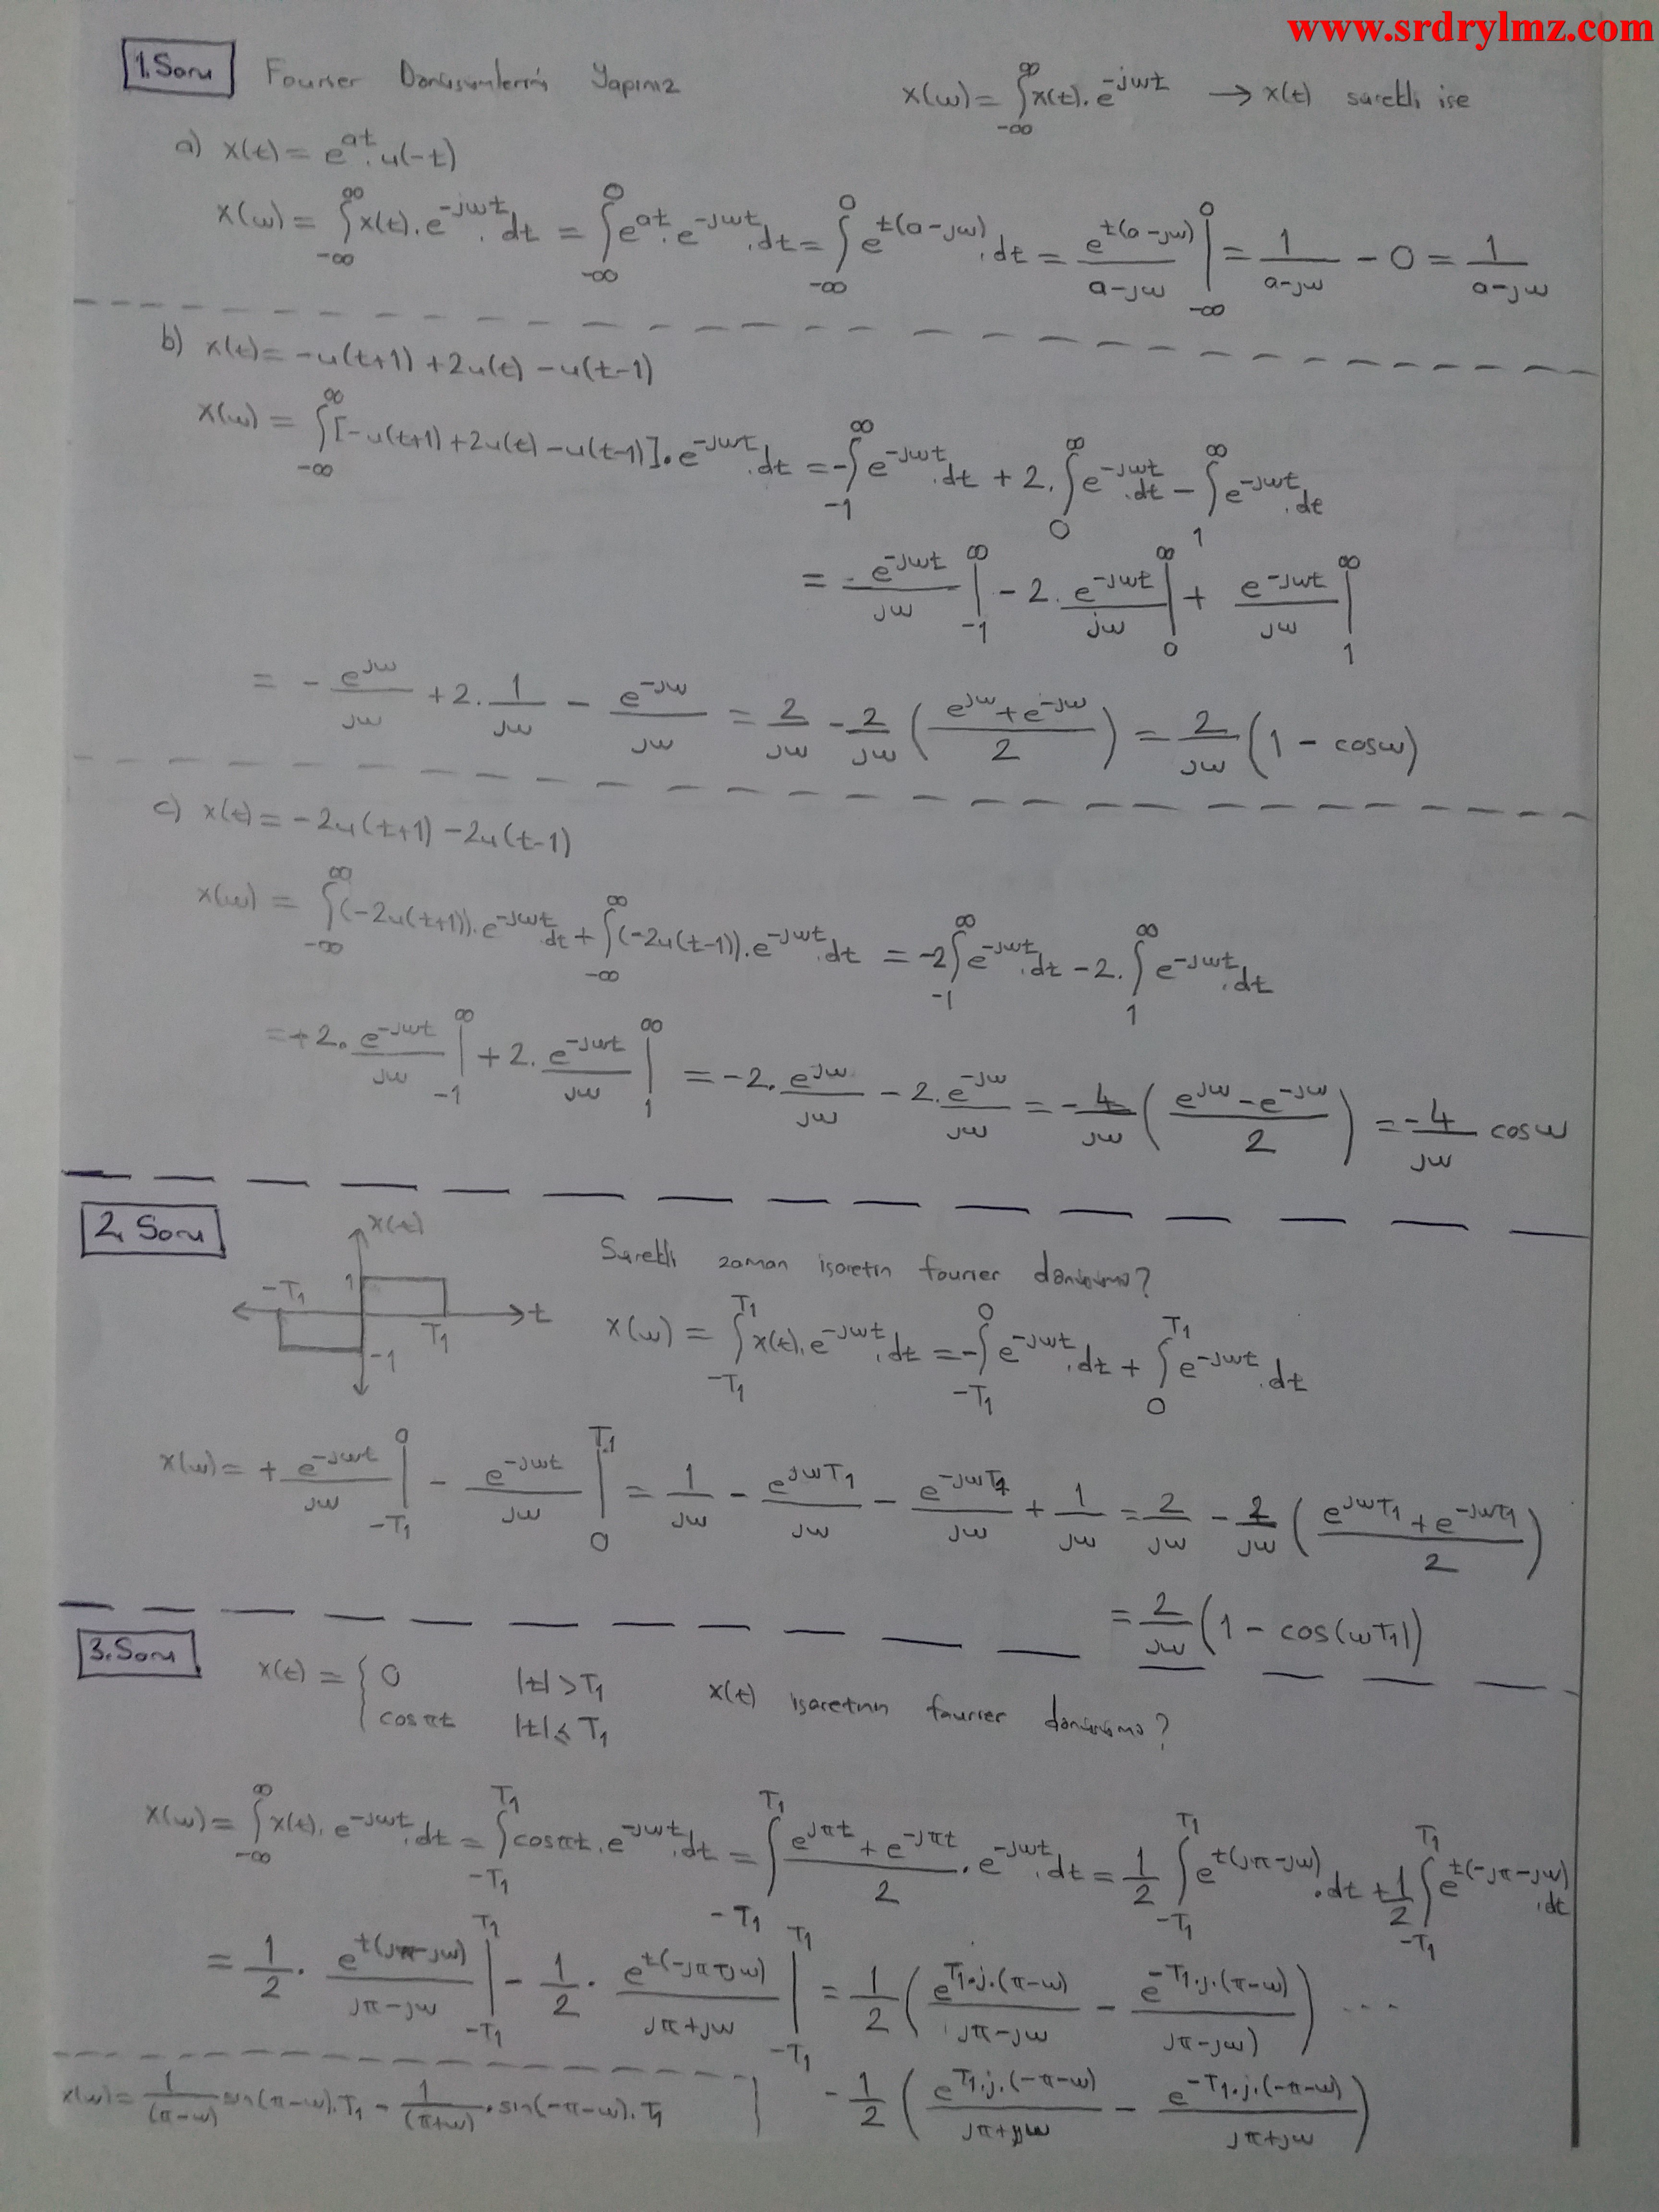 www.srdrylmz.com
1.Soru Fourier Dönüşümlerini Yapınız x(ω) = ∫_{-∞}^{∞} x(t).e^{-jωt} → x(t) sürekli ise
a) x(t) = e^{at}.u(-t)
x(ω) = ∫_{-∞}^{∞} x(t).e^{-jωt}.dt = ∫_{-∞}^{0} e^{at}.e^{-jωt}.dt = ∫_{-∞}^{0} e^{t(a-jω)}.dt = e^{t(a-jω)}/(a-jω) |_{-∞}^{0} = 1/(a-jω) - 0 = 1/(a-jω)
b) x(t) = -u(t+1) + 2u(t) - u(t-1)
x(ω) = ∫_{-∞}^{∞} [-u(t+1) + 2u(t) - u(t-1)].e^{-jωt}.dt = -∫_{-1}^{∞} e^{-jωt}.dt + 2.∫_{0}^{∞} e^{-jωt}.dt - ∫_{1}^{∞} e^{-jωt}.dt
= e^{-jωt}/jω |_{-1}^{∞} - 2.e^{-jωt}/jω |_{0}^{∞} + e^{-jωt}/jω |_{1}^{∞}
= - e^{jω}/jω + 2.1/jω - e^{-jω}/jω = 2/jω - 2/jω ((e^{jω} + e^{-jω})/2) = 2/jω (1 - cosω)
c) x(t) = -2u(t+1) - 2u(t-1)
x(ω) = ∫_{-∞}^{∞} (-2u(t+1)).e^{-jωt}.dt + ∫_{-∞}^{∞} (-2u(t-1)).e^{-jωt}.dt = -2∫_{-1}^{∞} e^{-jωt}.dt - 2.∫_{1}^{∞} e^{-jωt}.dt
= +2.e^{-jωt}/jω |_{-1}^{∞} + 2.e^{-jωt}/jω |_{1}^{∞} = -2.e^{jω}/jω - 2.e^{-jω}/jω = -4/jω ((e^{jω} - e^{-jω})/2) = -4/jω cosω
2. Soru
x(t)
-T₁ 1
T₁ t
-1
Sürekli zaman işaretin fourier dönüşümü?
x(ω) = ∫_{-T₁}^{T₁} x(t).e^{-jωt}.dt = -∫_{-T₁}^{0} e^{-jωt}.dt + ∫_{0}^{T₁} e^{-jωt}.dt
x(ω) = + e^{-jωt}/jω |_{-T₁}^{0} - e^{-jωt}/jω |_{0}^{T₁} = 1/jω - e^{jωT₁}/jω - e^{-jωT₁}/jω + 1/jω = 2/jω - 2/jω ((e^{jωT₁} + e^{-jωT₁})/2)
= 2/jω (1 - cos(ωT₁))
3.Soru
x(t) = { 0 |t| > T₁
cosπt |t| ≤ T₁
x(t) işaretinin fourier dönüşümü?
x(ω) = ∫_{-∞}^{∞} x(t).e^{-jωt}.dt = ∫_{-T₁}^{T₁} cosπt.e^{-jωt}.dt = ∫_{-T₁}^{T₁} (e^{jπt} + e^{-jπt})/2 . e^{-jωt}.dt = 1/2 ∫_{-T₁}^{T₁} e^{t(jπ-jω)}.dt + 1/2 ∫_{-T₁}^{T₁} e^{t(-jπ-jω)}.dt
= 1/2 . e^{t(jπ-jω)}/(jπ-jω) |_{-T₁}^{T₁} - 1/2 . e^{t(-jπ-jω)}/(jπ+jω) |_{-T₁}^{T₁} = 1/2 (e^{T₁.j.(π-ω)}/(jπ-jω) - e^{-T₁.j.(π-ω)}/(jπ-jω)) ...
- 1/2 (e^{T₁.j.(-π-ω)}/(jπ+jω) - e^{-T₁.j.(-π-ω)}/(jπ+jω))
x(ω) = 1/(π-ω) sin(π-ω).T₁ - 1/(π+ω) . sin(-π-ω).T₁